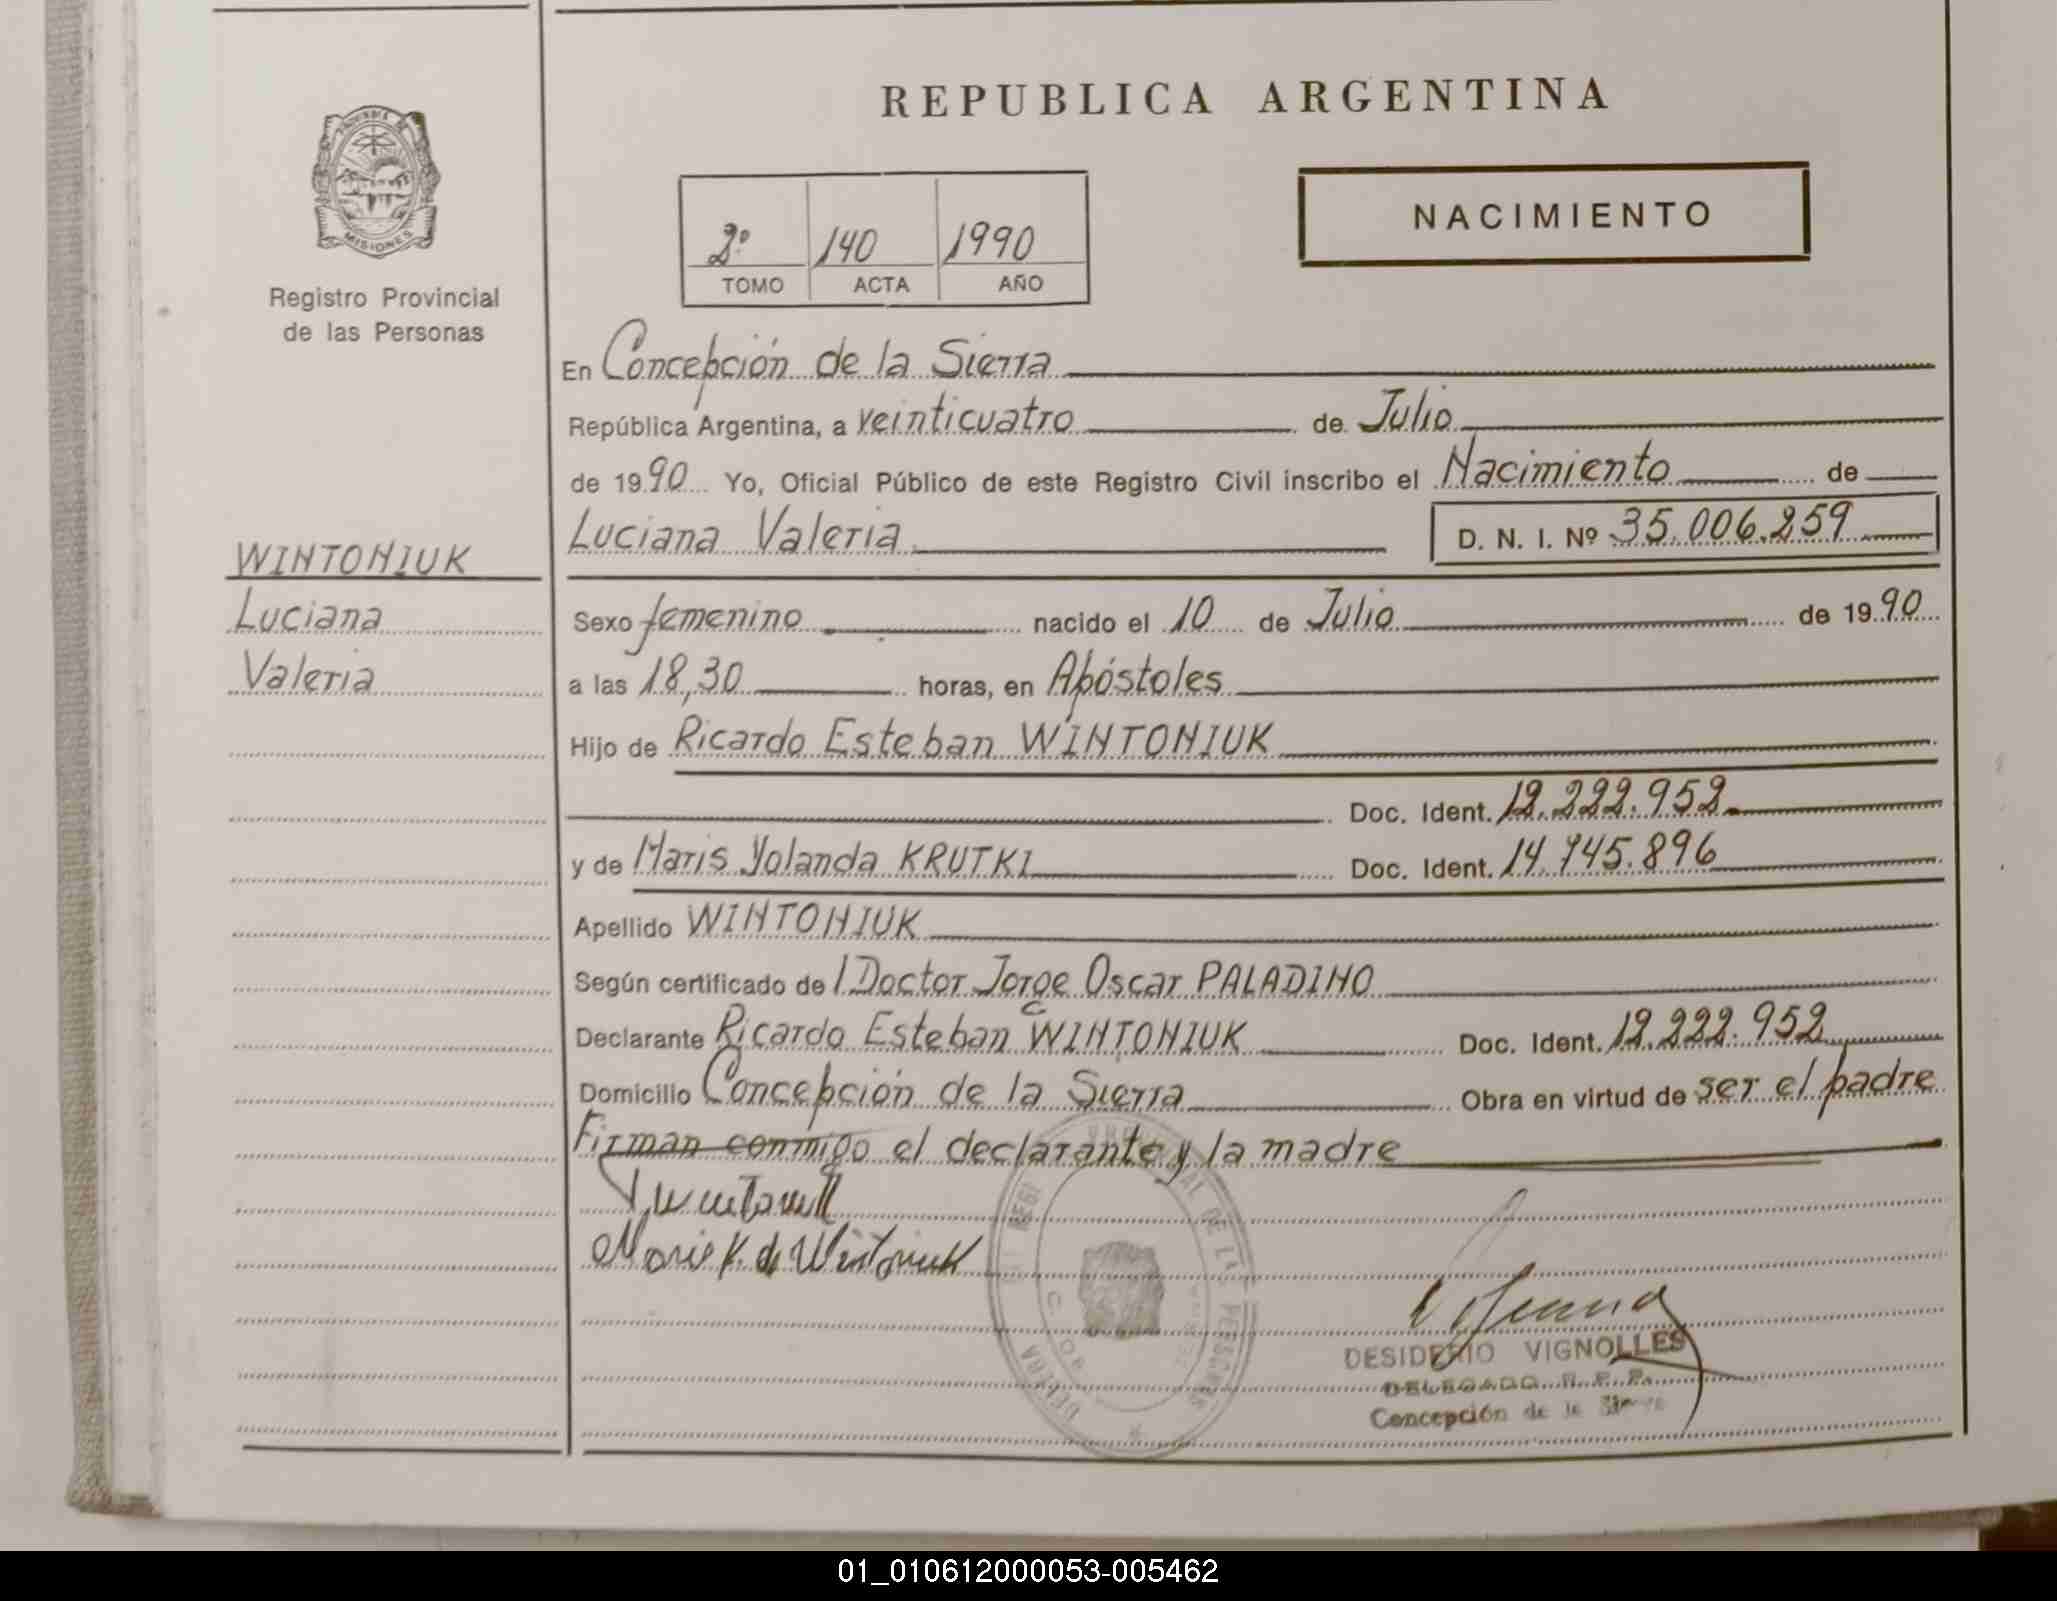 REPUBLICA ARGENTINA
PROVINCIA DE
MISIONES
Registro Provincial
de las Personas
2º 140 1990
TOMO ACTA AÑO
NACIMIENTO
En Concepción de la Sierra
República Argentina, a veinticuatro de Julio
de 1990 Yo, Oficial Público de este Registro Civil inscribo el Nacimiento de
Luciana Valeria D. N. I. Nº 35.006.259
WINTONIUK
Luciana
Valeria
Sexo femenino nacido el 10 de Julio de 1990
a las 18,30 horas, en Apóstoles
Hijo de Ricardo Esteban WINTONIUK
Doc. Ident. 12.222.952
y de Maris Yolanda KRUTKI Doc. Ident. 14.745.896
Apellido WINTONIUK
Según certificado del Doctor Jorge Oscar PALADINO
Declarante Ricardo Esteban WINTONIUK Doc. Ident. 12.222.952
Domicilio Concepción de la Sierra Obra en virtud de ser el padre
Firman conmigo el declarante y la madre
Maris K. de Wintoniuk
DESIDERIO VIGNOLLES
DELEGADO R. P. P.
Concepción de la Sierra
01_010612000053-005462